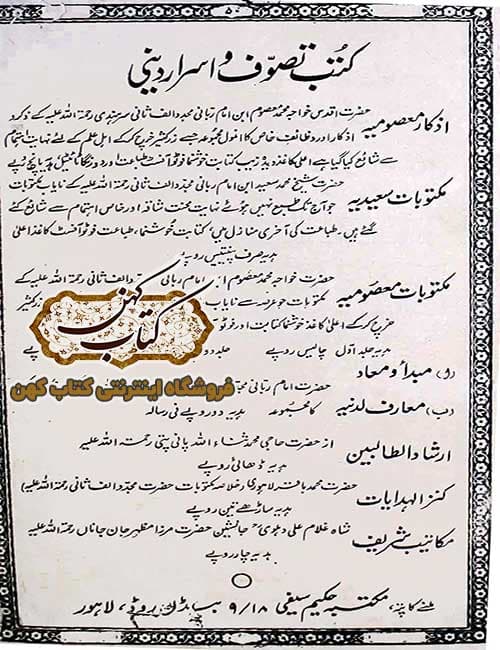 ۵۰
کتب تصوّف و اسرار دینی
اذکار معصومیہ حضرت اقدس خواجہ محمد معصوم ابن امام ربانی مجدد الف ثانی سرہندی رحمۃ اللہ علیہ کے ذکر و
اذکار اور وظائف خاص کا انمول مجموعہ جسے زر کثیر خرچ کرکے اہل علم کے لئے نہایت اہتمام
سے شائع کیا گیا ہے اعلیٰ کاغذ دیدہ زیب کتابت خوشنما فوٹو آفسٹ طباعت ہدیہ پانچ روپے
مکتوبات سعیدیہ حضرت شیخ محمد سعید ابن امام ربانی مجدد الف ثانی رحمۃ اللہ علیہ کے نایاب مکتوبات
جو آج تک طبع نہیں ہوئے نہایت محنت شاقہ اور خاص اہتمام سے شائع کئے
گئے ہیں۔ طباعت کی آخری منازل میں، کتابت خوشنما، طباعت فوٹو آفسٹ کاغذ اعلیٰ
ہدیہ صرف پینتیس روپیہ
مکتوبات معصومیہ حضرت خواجہ محمد معصوم ابن امام ربانی الف ثانی رحمۃ اللہ علیہ کے
مکتوبات جو عرصہ سے نایاب زر کثیر
خرچ کرکے اعلیٰ کاغذ خوشنما کتابت اور فوٹو
ہدیہ جلد اول چالیس روپے جلد دو پے
کتاب کهن
فروشگاه اینترنتی کتاب کهن
(ا) مبدأ و معاد حضرت امام ربانی مجد
(ب) معارف لدنیہ کا مجموعہ ہدیہ دو روپے فی رسالہ
ارشاد الطالبین از حضرت حاجی محمد ثناء اللہ پانی پتی رحمۃ اللہ علیہ
ہدیہ ڈھائی روپے
کنز الہدایات حضرت محمد باقر لاہوری (خلاصہ مکتوبات حضرت مجدد الف ثانی رحمۃ اللہ علیہ)
ہدیہ ساڑھے تین روپے
مکاتیب شریف شاہ غلام علی دہلوی جانشین حضرت مرزا مظہر جان جاناں رحمۃ اللہ علیہ
ہدیہ چار روپے
ملنے کا پتہ، مکتبہ حکیم سیفی ۹/۱۸ روڈ، لاہور